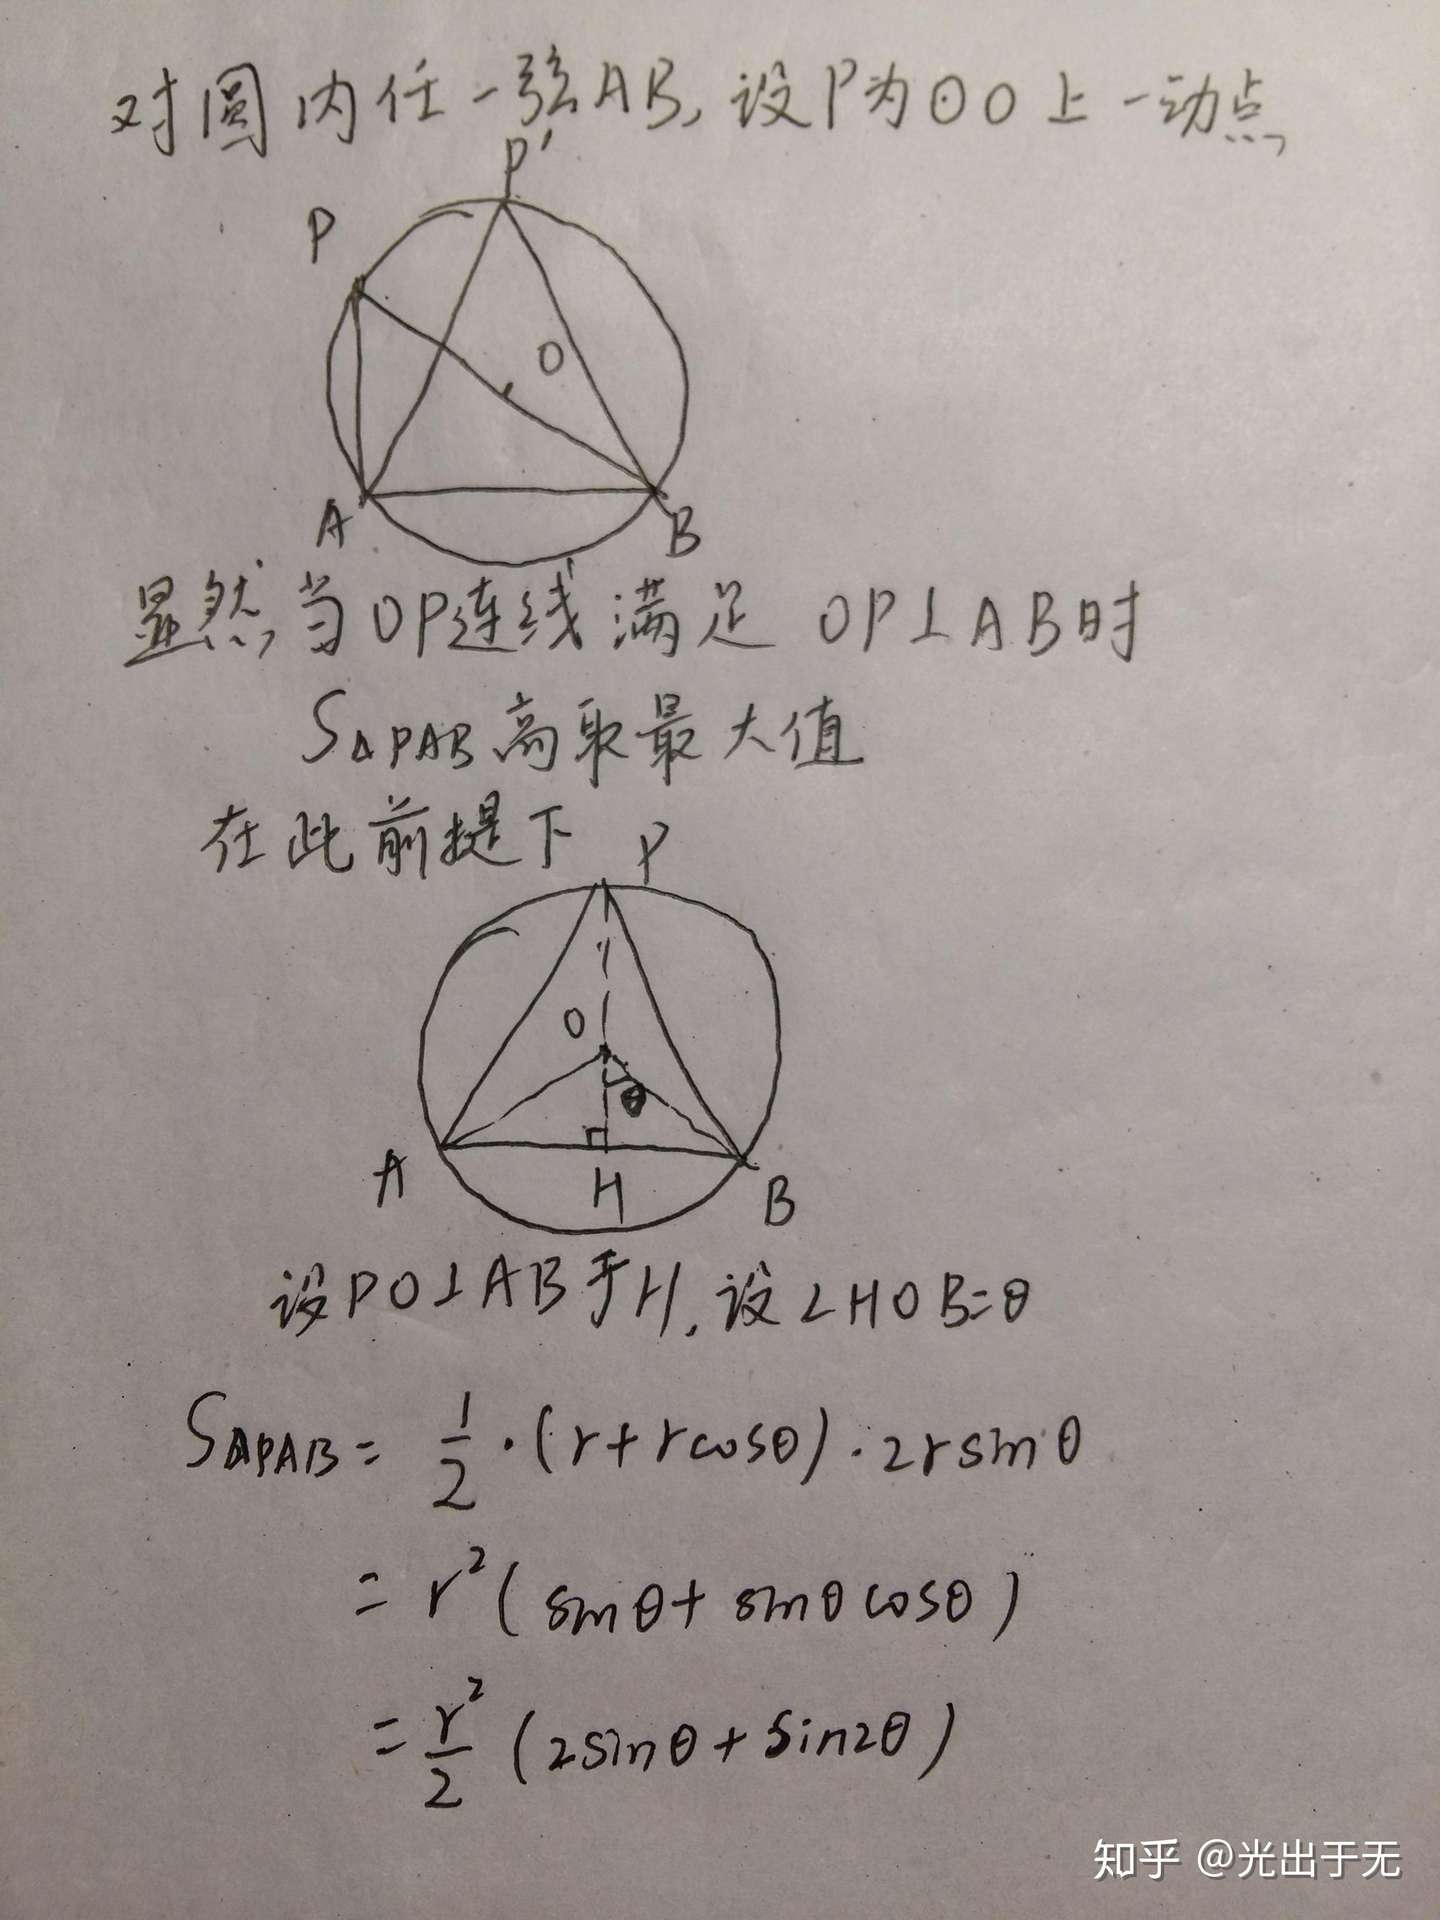 对圆内任一弦AB,设P为⊙O上一动点,
P'
P
O
A
B
显然,当OP连线满足 OP⊥AB时
S△PAB高取最大值
在此前提下
P
O
θ
A
H
B
设PO⊥AB于H,设∠HOB=θ
S△PAB= 1/2·(r+rcosθ)·2rsinθ
=r²(sinθ+sinθcosθ)
=r²/2(2sinθ+sin2θ)
知乎 @光出于无